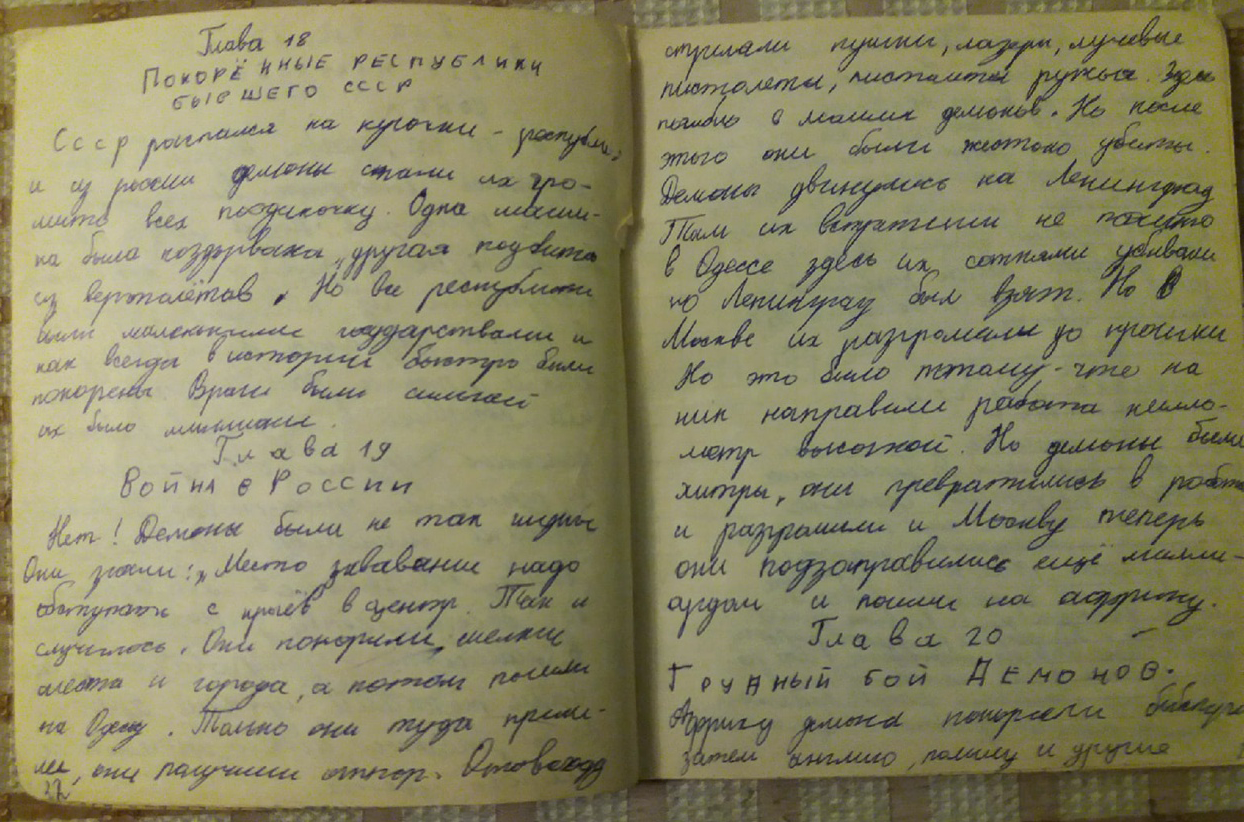 Глава 18
ПОКОРЁННЫЕ РЕСПУБЛИКИ
БЫВШЕГО СССР
СССР распался на кусочки -
и из россии демоны стали их гро-
мить всех поодиночку. Одна маши-
на была водородная, другая подбита
из вертолётов. Но все республики
были маленькими государствами и
как всегда в истории быстро были
покорены Враги были силищей
их было миллионы.
Глава 19
ВОЙНА В РОССИИ
Нет! Демоны были не так глупы
Они знали: „Место завование надо
обступать с краёв в центр. Так и
случилось. Они покорили мелкие
места и города, а потом пошли
на Одессу. Только они туда пришли-
ли, они получили отпор. Отовсюду
стриляли пушки, лазеры, лучевые
пистолеты, пистолеты ружья. Здесь
погибло 6 машин демонов. Но после
этого они были жестоко убиты.
Демоны двинулись на Ленинград
Там их встретили не
в Одессе здесь их сотнями убивали
но Ленинград был взят. Но в
Москве их разгромили до крошки
Но это было потому-что на
них направили робота кило-
метр высотой. Но демоны были
хитры, они превратились в робота
и разгромили и Москву теперь
они подзаправились ещё милли-
ардом и пошли на африку.
Глава 20
ТРУДНЫЙ БОЙ ДЕМОНОВ.
Африку демоны покорили
затем англию, и другие